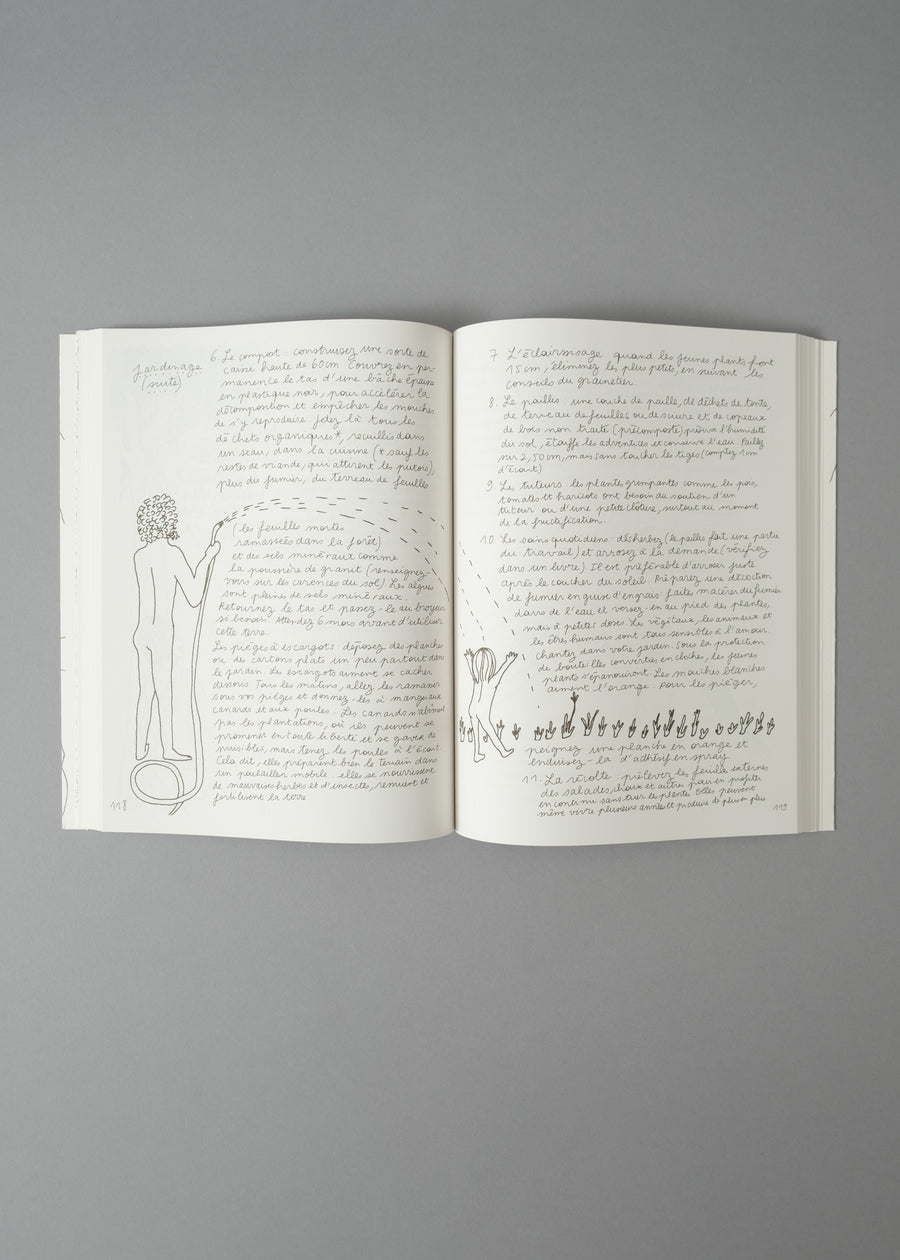 Jardinage
(suite)
6. Le compost : construisez une sorte de
caisse haute de 60 cm. Couvrez en per-
manence le tas d'une bâche épaisse
en plastique noir, pour accélérer la
décomposition et empêcher les mouches
de s'y reproduire. Jetez là tous les
déchets organiques*, recuillis dans
un seau, dans la cuisine (* sauf les
restes de viande, qui attirent les putois),
plus du fumier, du terreau de feuilles
(les feuilles mortes
ramassées dans la forêt)
et des sels minéraux comme
la poussière de granit (renseignez-
vous sur les carences du sol). Les algues
sont pleines de sels minéraux.
Retournez le tas et passez-le au broyeur
si besoin. Attendez 6 mois avant d'utiliser
cette terre.
Les pièges à escargots : déposez des planches
ou des cartons plats un peu partout dans
le jardin. Les escargots aiment se cacher
dessous. Tous les matins, allez les ramasser
sous vos pièges et donnez-les à manger aux
canards et aux poules. Les canards n'abîment
pas les plantations, où ils peuvent se
promener en toute liberté et se gaver de
nuisibles, mais tenez les poules à l'écart.
Cela dit, elle préparent bien le terrain dans
un poulailler mobile : elles se nourrissent
de mauvaises herbes et d'insectes, remuent et
fertilisent la terre
118
7. L'éclaircissage : quand les jeunes plants font
15 cm, éliminez les plus petits, en suivant les
conseils du grainetier.
8. Le paillis : une couche de paille, de déchets de tonte,
de terreau de feuilles ou de sciure et de copeaux
de bois non traité (précomposté) préserve l'humidité
du sol, étouffe les adventices et conserve l'eau. Paillez
sur 2,50 cm, mais sans toucher les tiges (comptez 1 cm
d'écart)
9. Les tuteurs : les plantes grimpantes comme les pois,
tomates et haricots ont besoin du soutien d'un
tuteur ou d'une petite clôture, surtout au moment
de la fructification.
10. Les soins quotidiens : désherbez (le paillis fait une partie
du travail) et arrosez à la demande (vérifiez
dans un livre). Il est préférable d'arroser juste
après le coucher du soleil. Préparez une décoction
de fumier en guise d'engrais : faites macérer du fumier
dans de l'eau et versez-en au pied des plantes,
mais à petites doses. Les végétaux, les animaux et
les êtres humains sont tous sensibles à l'amour.
Chantez dans votre jardin. Sous la protection
de bouteilles converties en cloches, les jeunes
plants s'épanouiront. Les mouches blanches
aiment l'orange. pour les piéger,
peignez une planche en orange et
enduisez-la d'adhésif en spray.
11. La récolte : prélevez les feuilles externes
des salades, choux et autres pour en profiter
en continu sans tuer la plante. Elles peuvent
même vivre plusieurs années et produire de plus en plus
119